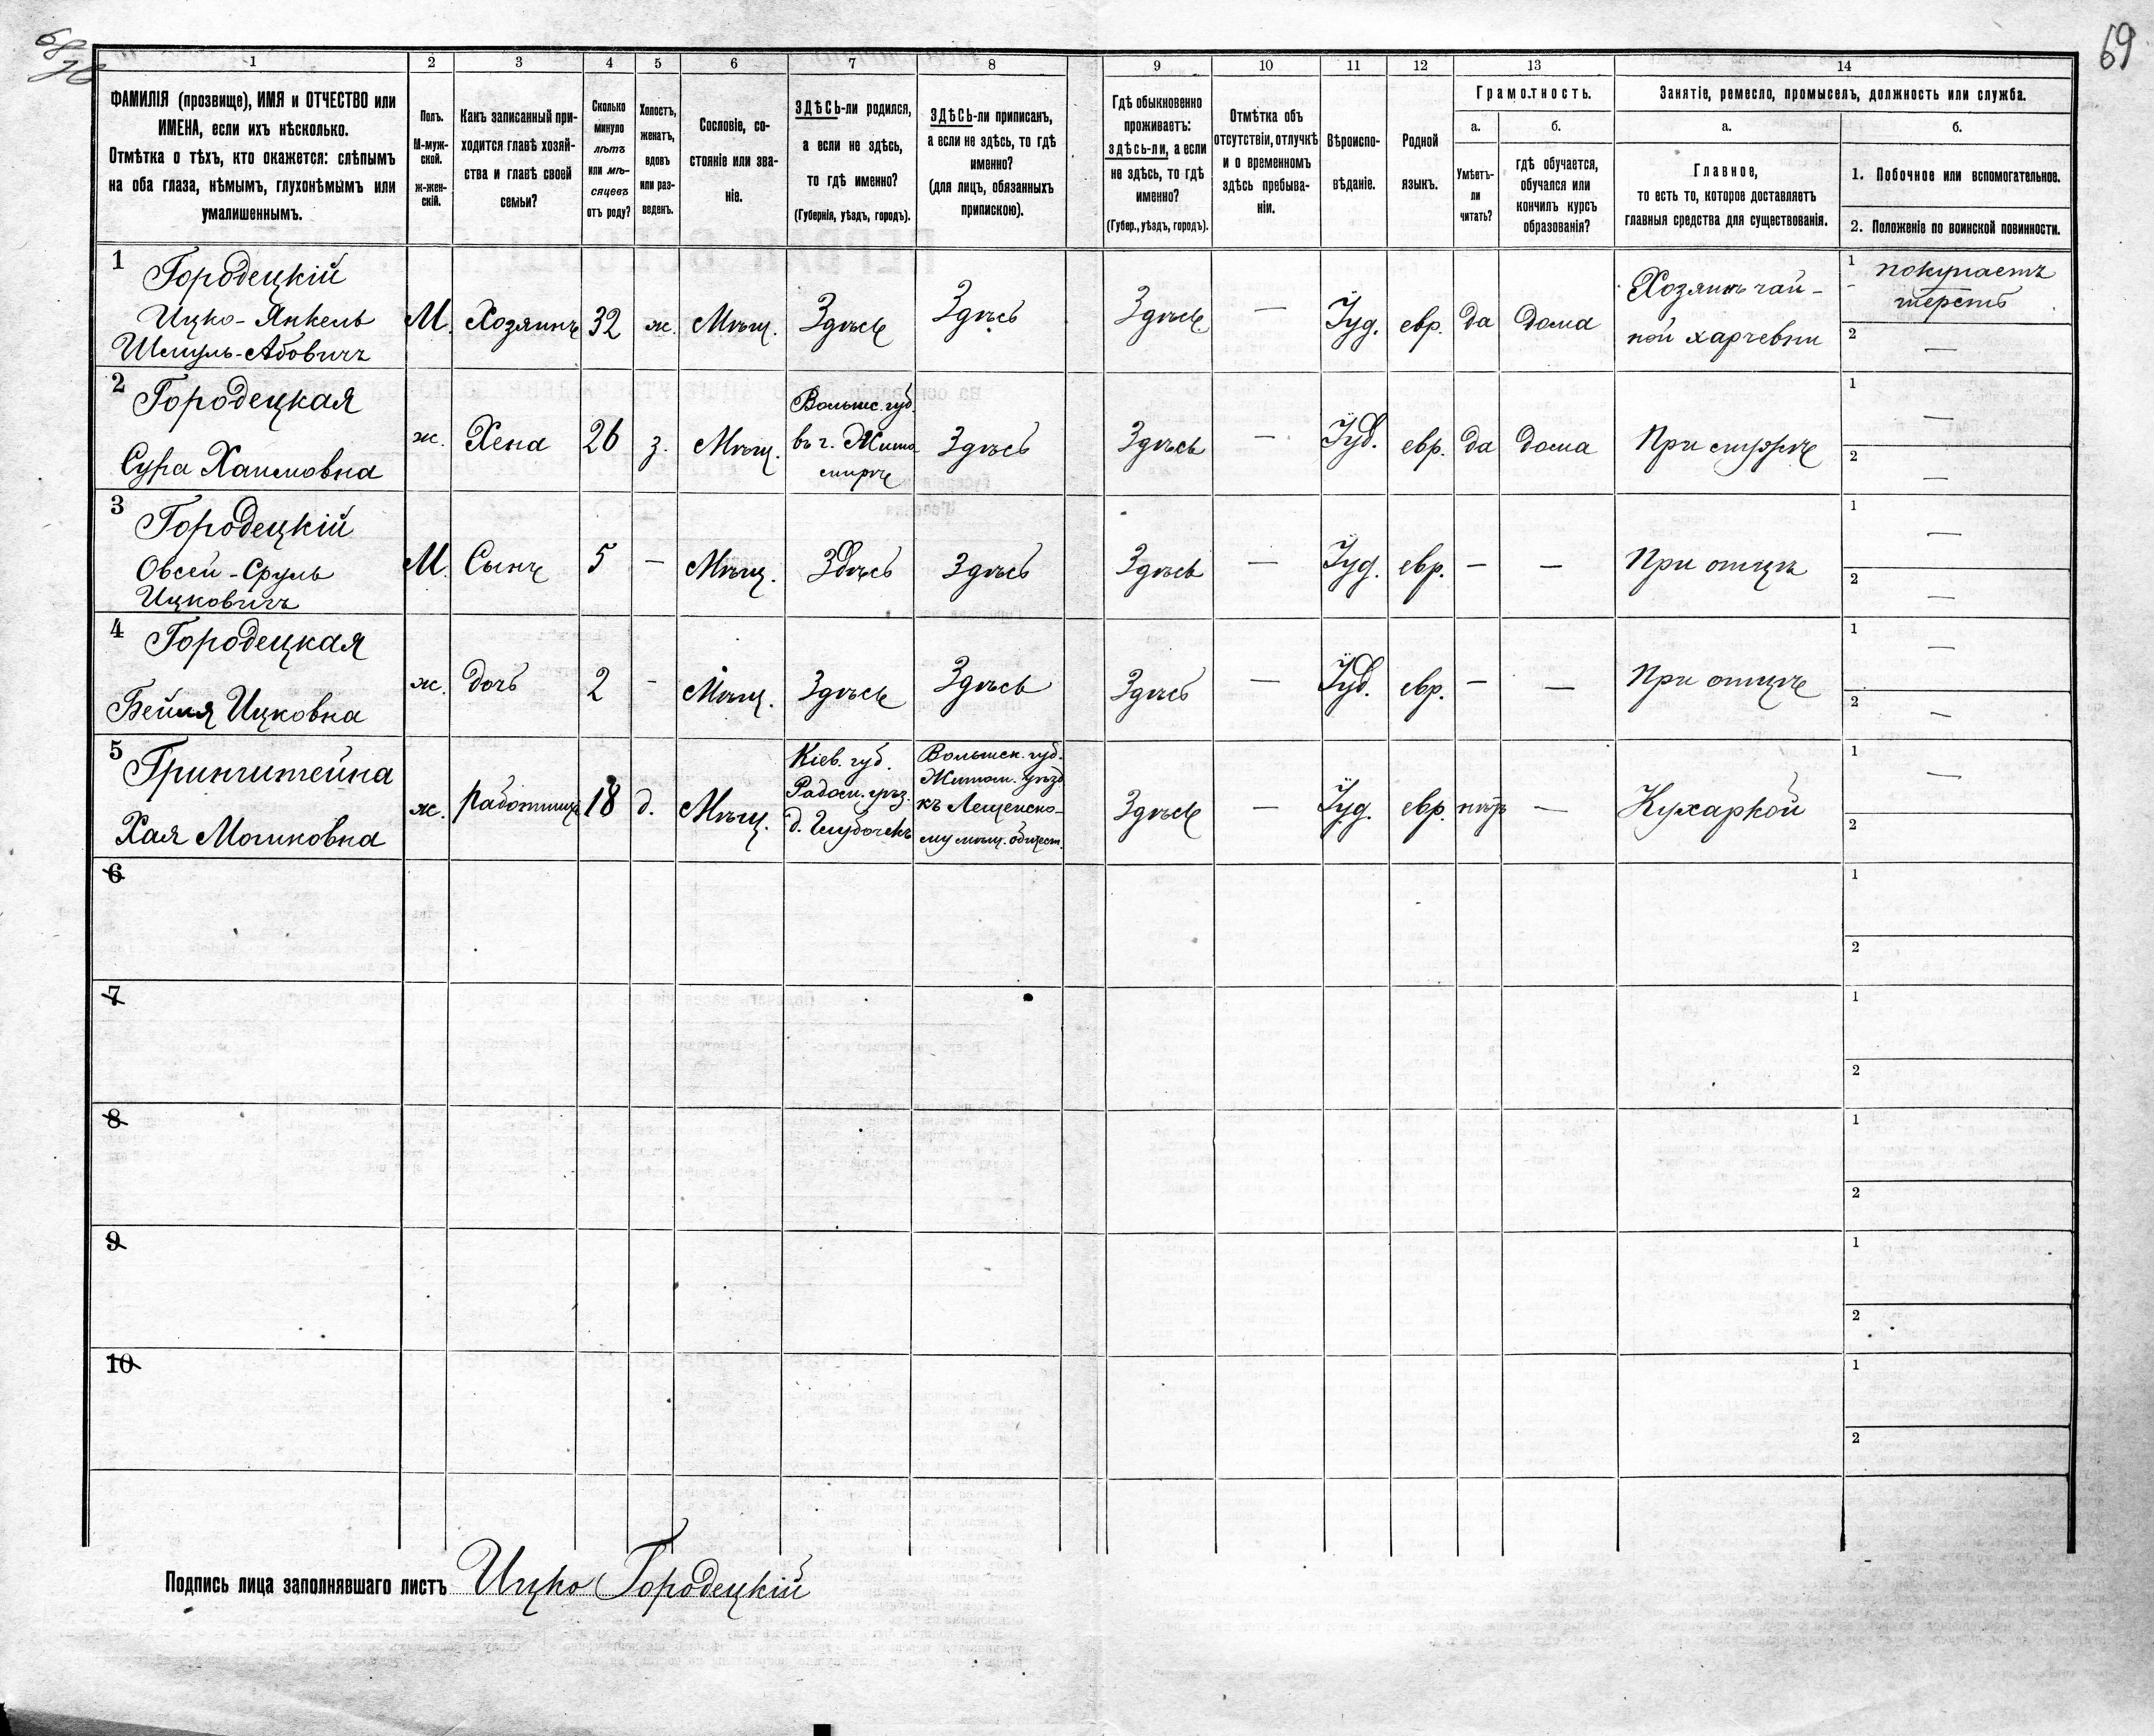 69
1 2 3 4 5 6 7 8 9 10 11 12 13 14
ФАМИЛІЯ (прозвище), ИМЯ и ОТЧЕСТВО или
ИМЕНА, если ихъ нѣсколько.
Отмѣтка о тѣхъ, кто окажется: слѣпымъ
на оба глаза, нѣмымъ, глухонѣмымъ или
умалишеннымъ.
Полъ.
М-муж-
ской.
ж-жен-
скій.
Какъ записанный при-
ходится главѣ хозяй-
ства и главѣ своей
семьи?
Сколько
минуло
лѣтъ
или мѣ-
сяцевъ
отъ роду?
Холостъ,
женатъ,
вдовъ
или раз-
веденъ.
Сословіе, со-
стояніе или зва-
ніе.
ЗДѢСЬ-ли родился,
а если не здѣсь,
то гдѣ именно?
(Губернія, уѣздъ, городъ).
ЗДѢСЬ-ли приписанъ,
а если не здѣсь, то гдѣ
именно?
(для лицъ, обязанныхъ
припискою).
Гдѣ обыкновенно
проживаетъ:
здѣсь-ли, а если
не здѣсь, то гдѣ
именно?
(Губер., уѣздъ, городъ).
Отмѣтка объ
отсутствіи, отлучкѣ
и о временномъ
здѣсь пребыва-
ніи.
Вѣроиспо-
вѣданіе.
Родной
языкъ.
Грамотность.
а.
Умѣетъ-
ли
читать?
б.
гдѣ обучается,
обучался или
кончилъ курсъ
образованія?
Занятіе, ремесло, промыселъ, должность или служба.
а.
Главное,
то есть то, которое доставляетъ
главныя средства для существованія.
б.
1. Побочное или вспомогательное.
2. Положеніе по воинской повинности.
1
Городецкій
Ицко-Янкель
Шмуль-Абовичъ
М. Хозяинъ 32 ж. Мѣщ. Здѣсь Здѣсь Здѣсь — Іуд. евр. да дома
Хозяинъ чай-
ной харчевни
1 покупаетъ
шерсть
2 —
2
Городецкая
Сура Хаимовна
ж. Жена 26 з. Мѣщ.
Волынс. губ.
въ г. Жито-
мирѣ
Здѣсь Здѣсь — Іуд. евр. да дома При мужѣ
1 —
2 —
3
Городецкій
Овсей-Сруль
Ицковичъ
М Сынъ 5 — Мѣщ. Здѣсь Здѣсь Здѣсь — Іуд. евр. — — При отцѣ
1 —
2 —
4
Городецкая
Бейля Ицковна
ж. дочь 2 - Мѣщ. Здѣсь Здѣсь Здѣсь — Іуд. евр. — — При отцѣ
1 —
2 —
5
Гринштейна
Хая Мошковна
ж. работница 18 д. Мѣщ.
Кіев. губ.
Радом. уѣз.
д. Глубочекъ
Волынск. губ.
Житом. уѣзд.
къ Лещинско-
му мѣщ. общест.
Здѣсь — Іуд. евр. нѣтъ — Кухаркой
1 —
2
6
1
2
7
1
2
8
1
2
9
1
2
10
1
2
Подпись лица заполнявшаго листъ Ицко Городецкій